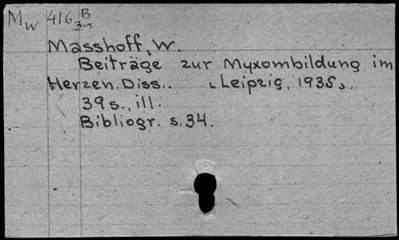 Mw 416 3 B
Masshoff, W.
Beiträge zur Myxombildung im
Herzen. Diss.. Leipzig, 1935.
39 s., ill.
Bibliogr. s. 34.